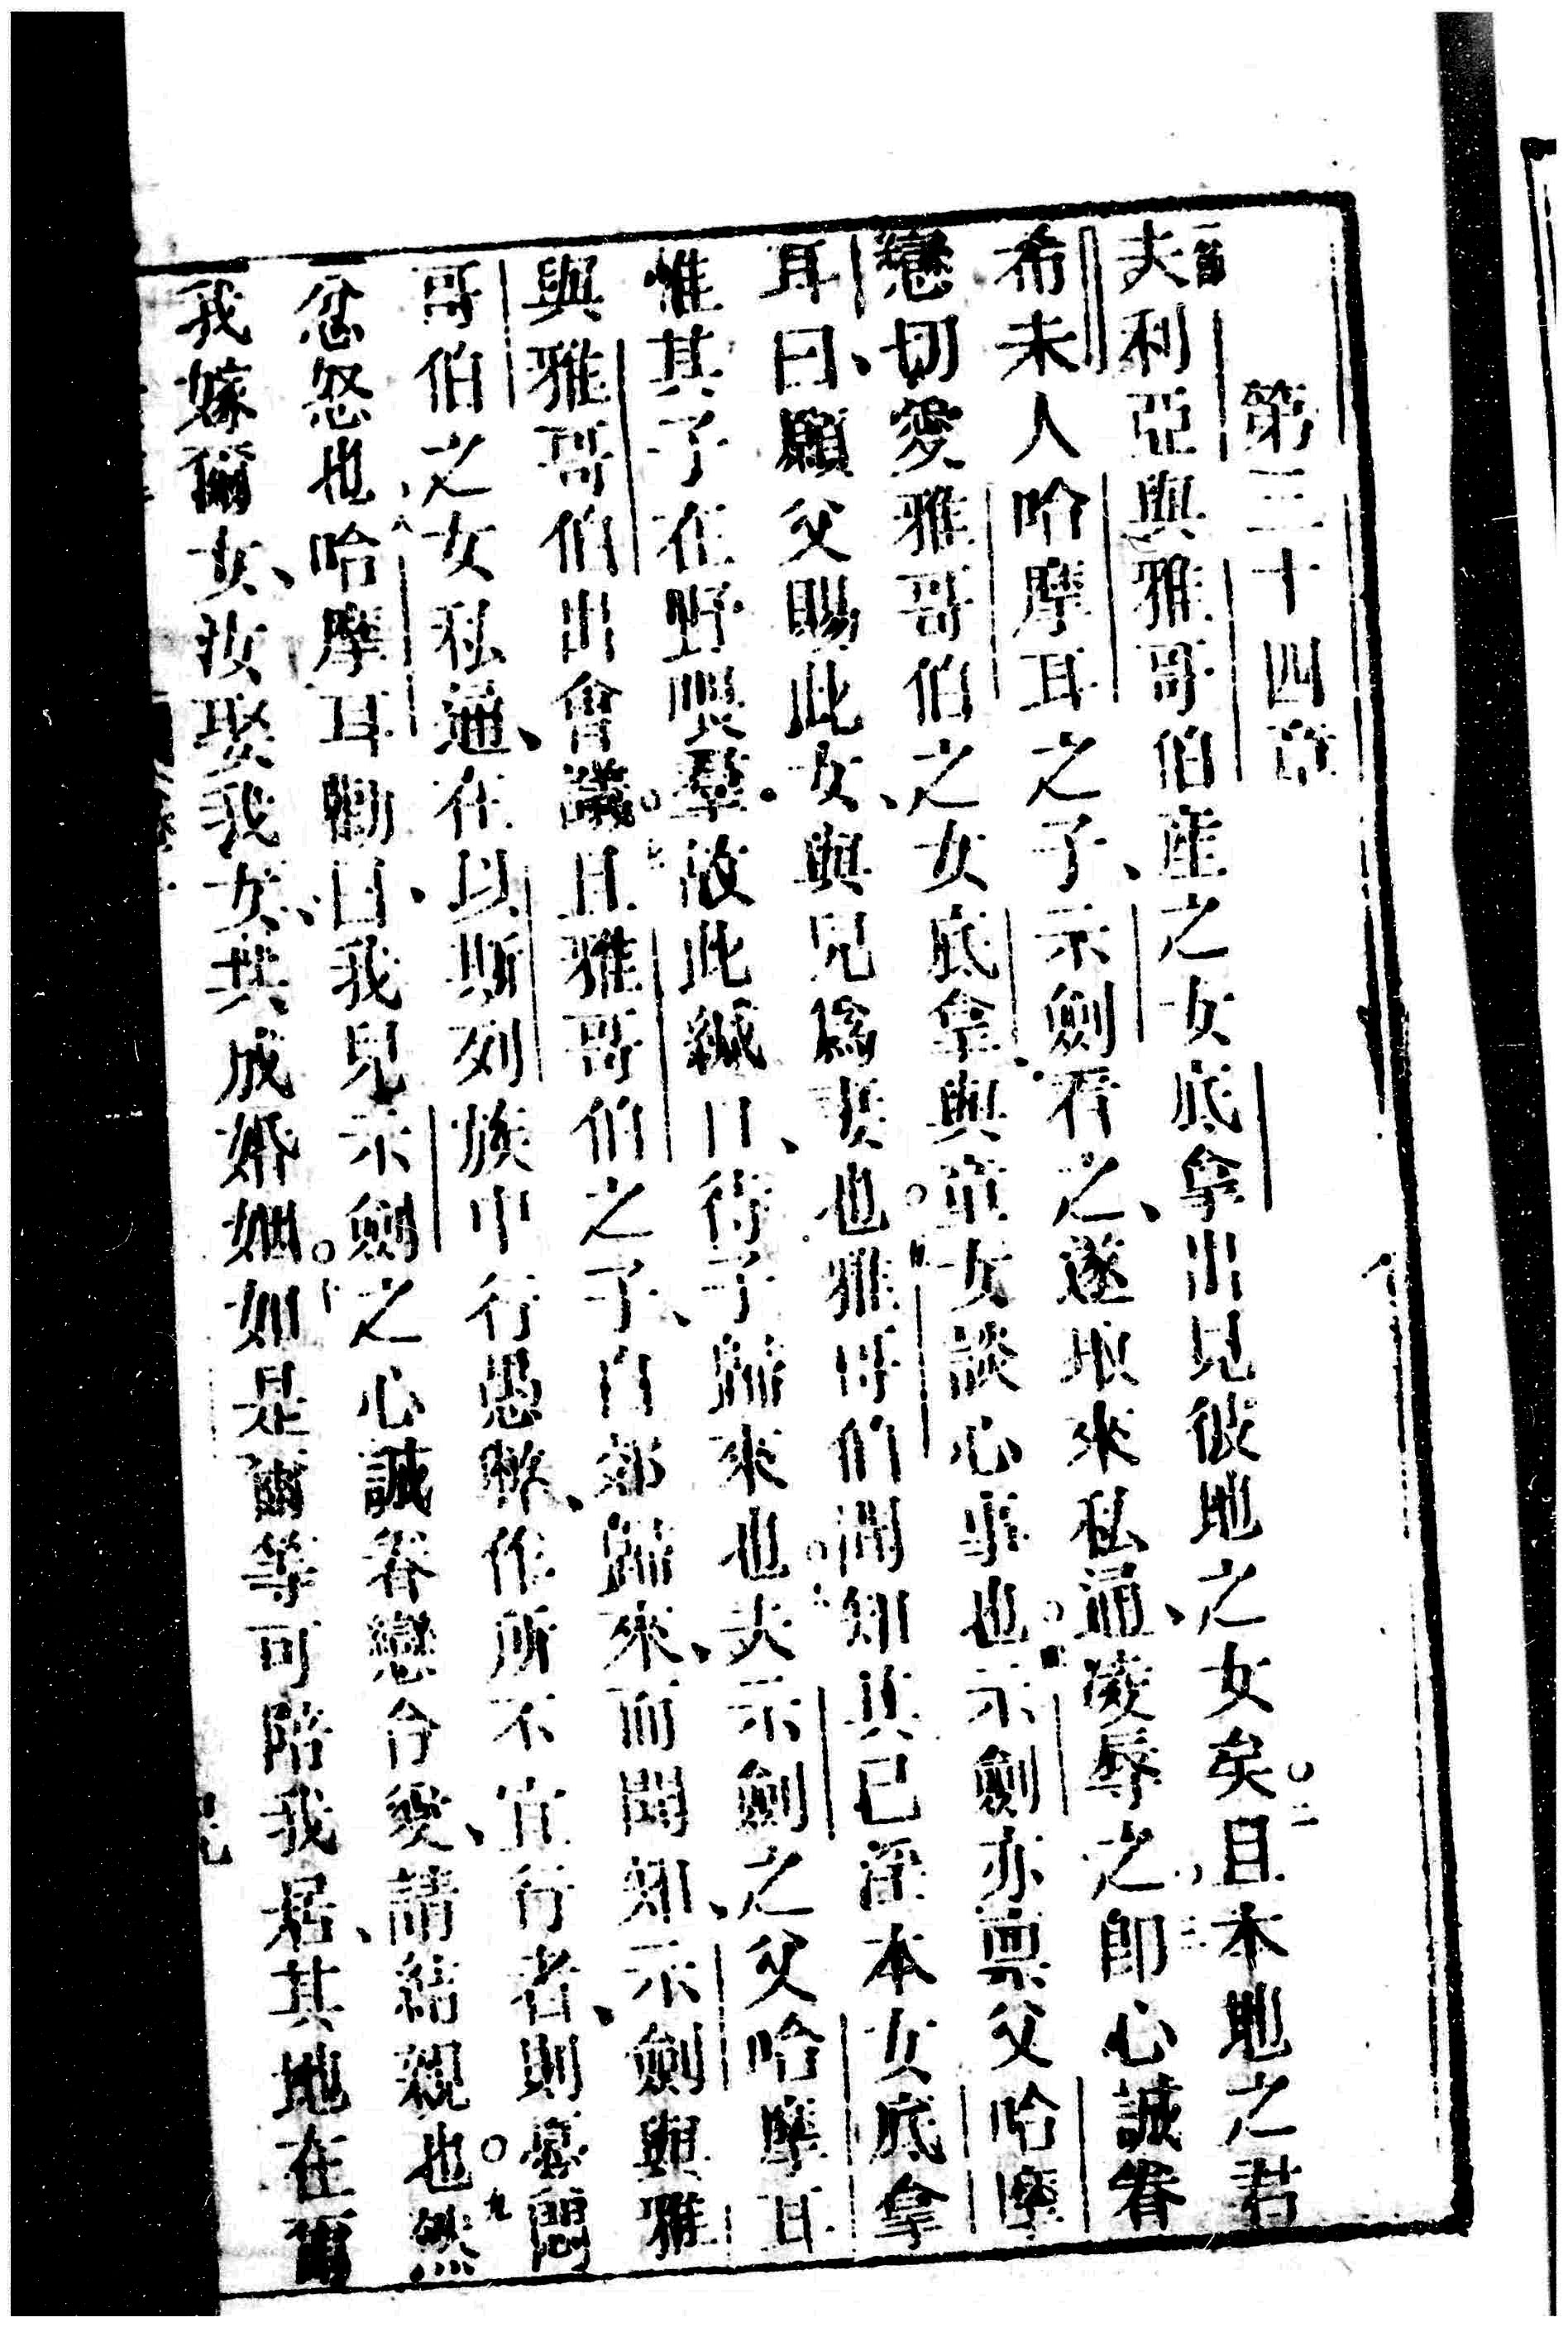 第三十四章
一節夫利亞與雅哥伯産之女底拿出見彼地之女矣。二且本地之君
希未人哈摩耳之子、示劍看之、遂取來私通、凌辱之、三即心誠眷
戀切愛雅哥伯之女底拿、與童女談心事也。四示劍亦禀父哈摩
耳曰、願父賜此女、與兒爲妻也。五雅哥伯聞知其已淫本女底拿
惟其子在野喂羣。故此緘口、待子歸來也。六夫示劍之父哈摩耳
與雅哥伯出會議。七且雅哥伯之子、自郊歸來、而聞知、示劍與雅
哥伯之女私通、在以斯列族中行愚弊、作所不宜行者、則憂悶
忿怒也、八哈摩耳勸曰、我兒示劍之心誠眷戀令愛、請結親也。九然
我嫁爾女、汝娶我女、共成婚姻。十如是爾等可陪我居、其地在爾